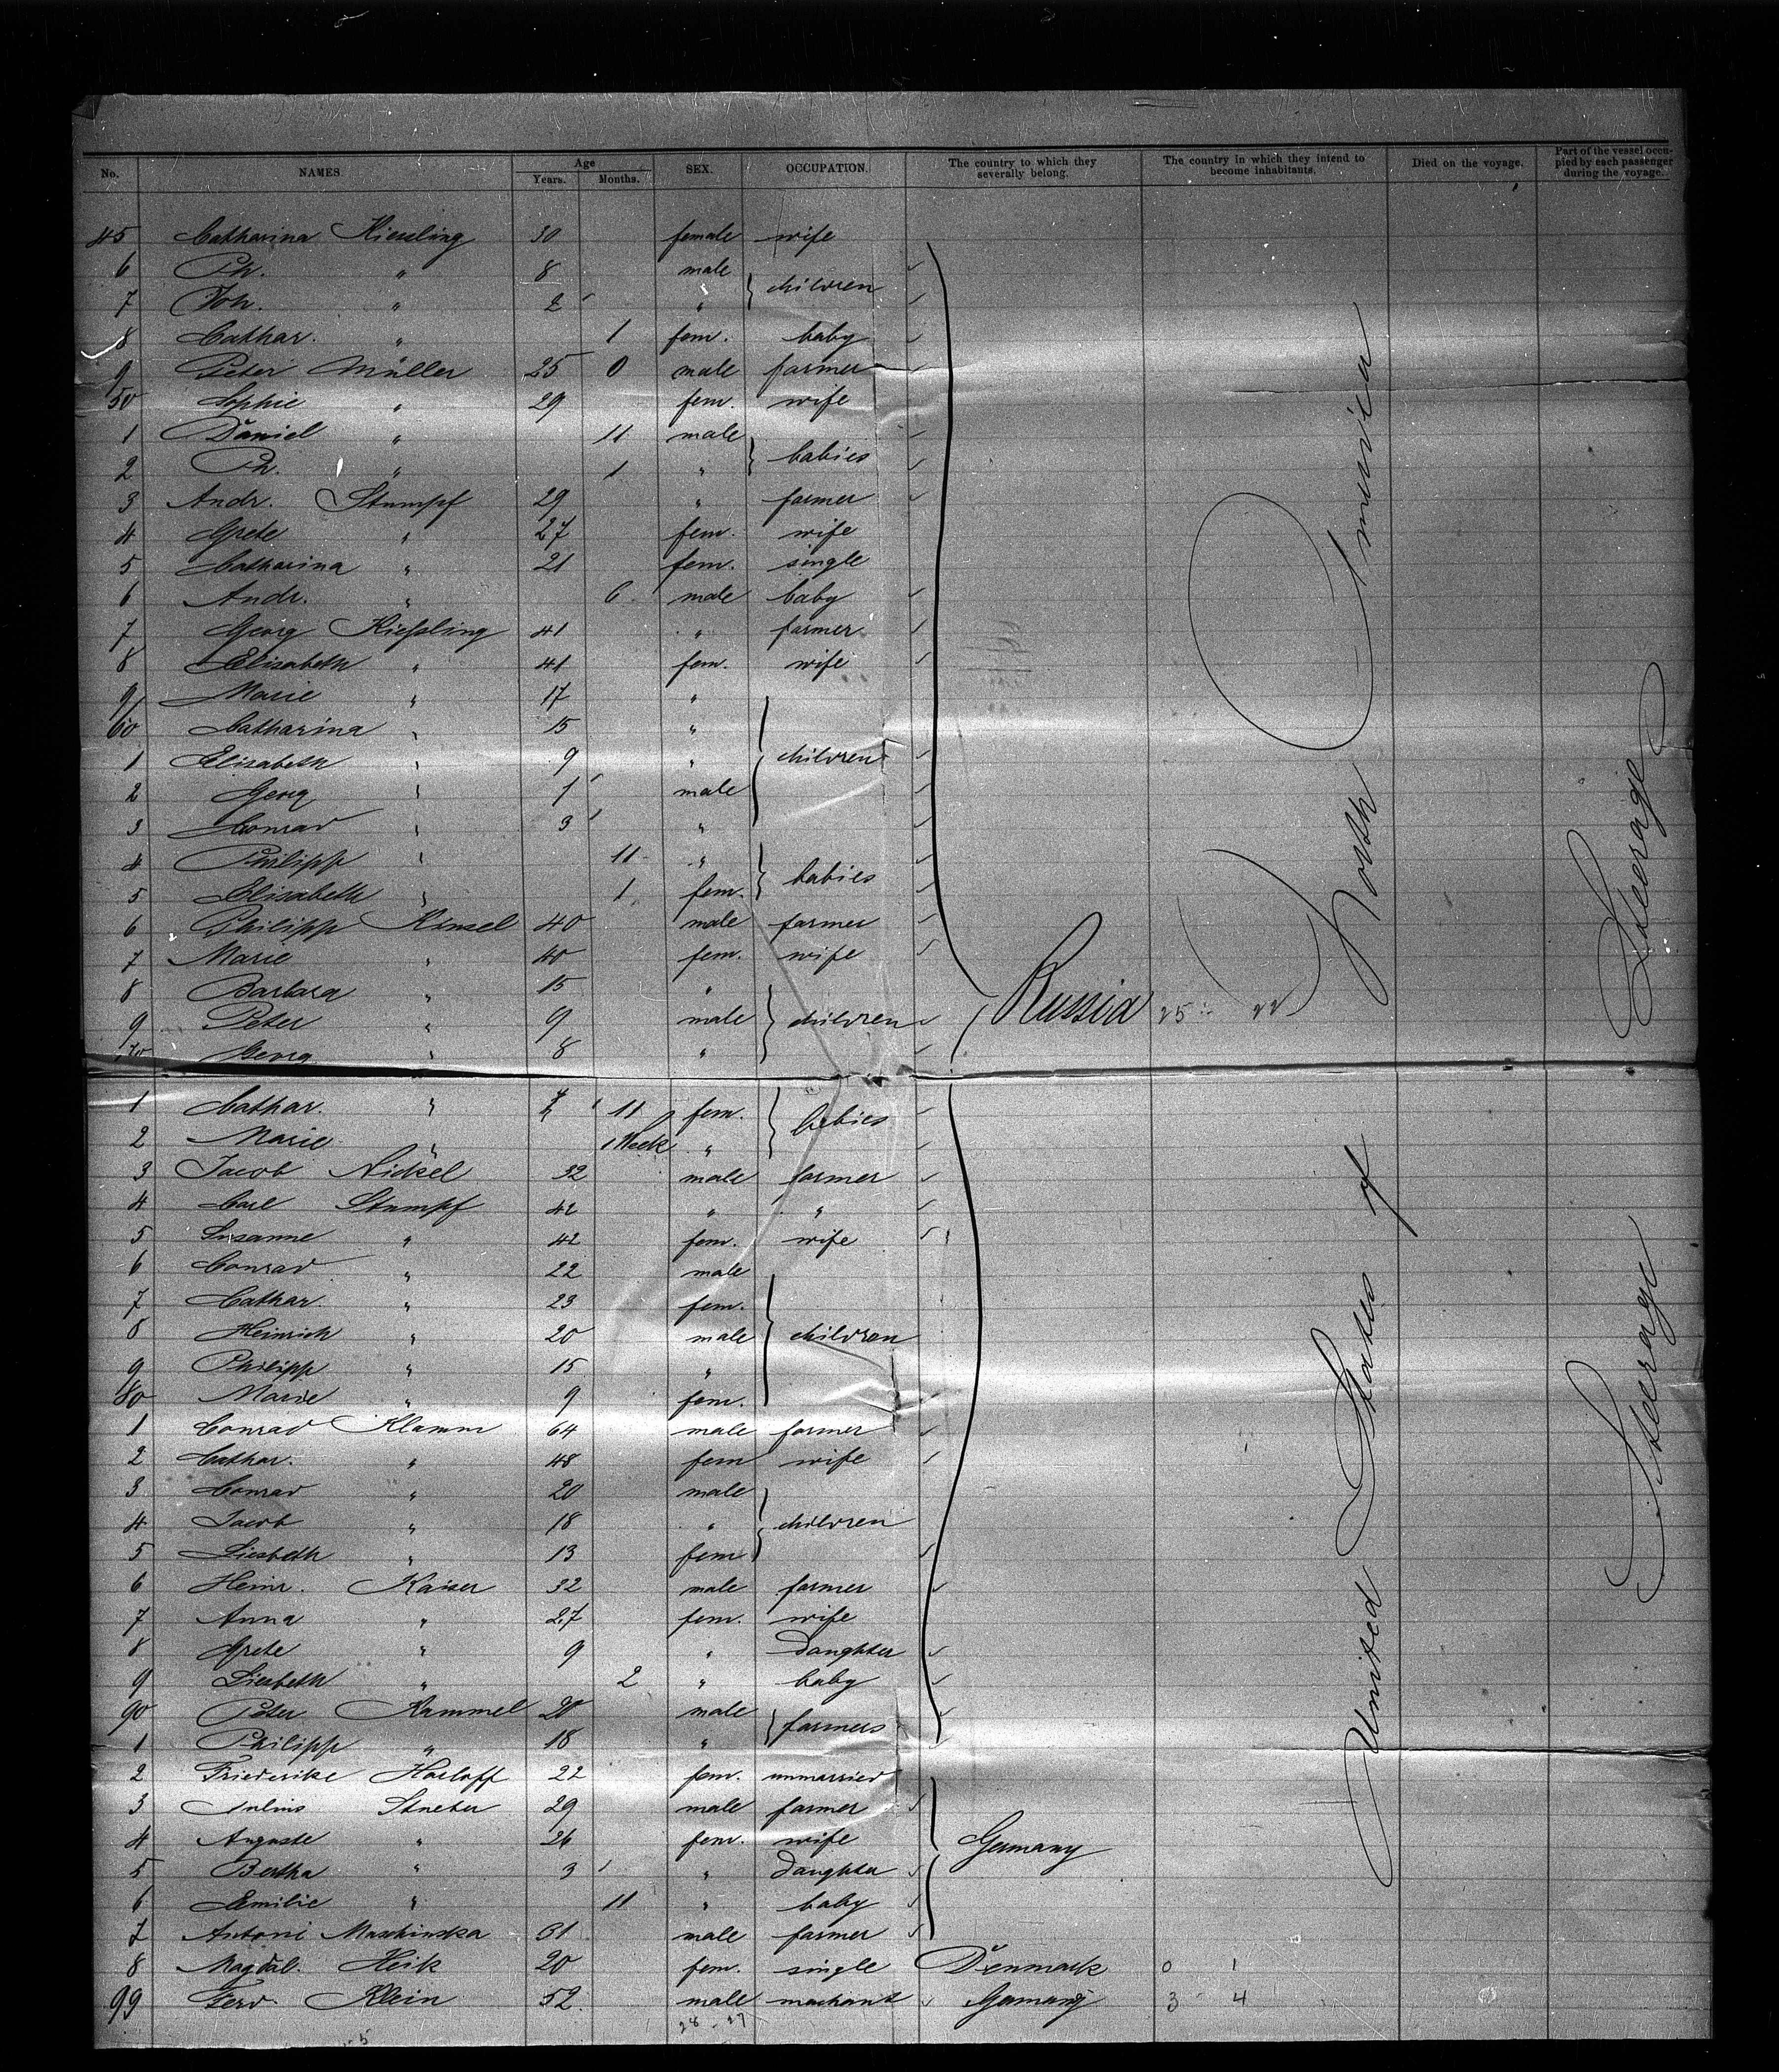 No. NAMES Age Years. Months. SEX. OCCUPATION. The country to which they severally belong. The country in which they intend to become inhabitants. Died on the voyage. Part of the vessel occupied by each passenger during the voyage.
45 Catharina Kiessling 30 female wife
6 Ph. " 8 male children
7 Joh. " 2 "
8 Cathar. " 1 fem. baby
9 Peter Müller 25 0 male farmer
50 Sophie " 29 fem. wife
1 Daniel " 11 male babies
2 Ph. " 1 "
3 Andr. Stumpf 29 " farmer
4 Grete " 27 fem. wife
5 Catharina " 21 fem. single
6 Andr. " 6 male baby
7 Georg Kießling 41 " farmer
8 Elisabeth " 41 fem. wife
9 Marie " 17 "
60 Catharina " 15 "
1 Elisabeth " 9 " children
2 Georg " male
3 Conrad " 3 "
4 Philipp " 11 " babies
5 Elisabeth " 1 fem.
6 Philipp Kinsel 40 male farmer
7 Marie " 40 fem. wife
8 Barbara " 15 "
9 Peter " 9 male children Russia 25 22
70 Georg " 8 "
1 Cathar. " 11 fem. babies
2 Marie " 1 Week "
3 Jacob Nickel 32 male farmer
4 Carl Stumpf 42 " "
5 Susanne " 42 fem. wife
6 Conrad " 22 male
7 Cathar. " 23 fem.
8 Heinrich " 20 male children
9 Philipp " 15 "
80 Marie " 9 fem.
1 Conrad Klamm 64 male farmer
2 Cathar. " 48 fem wife
3 Conrad " 20 male
4 Jacob " 18 " children
5 Liesbeth " 13 fem
6 Heinr. Kaiser 32 male farmer
7 Anna " 27 fem. wife
8 Grete " 9 " Daughter
9 Liesbeth " 2 " baby
90 Peter Kammel 20 male farmers
1 Philipp " 18 "
2 Friederike Harloff 22 fem. unmarried
3 Julius Streter 29 male farmer
4 Auguste " 26 fem. wife Germany
5 Bertha " 3 " Daughter
6 Emilie " 11 " baby
7 Antoni Maschinska 31 male farmer
8 Magdal. Heik 20 fem. single Denmark 0 1
99 Ferd. Klein 52 male machant Germany 3 4
28 - 27
United States of North America
Steerage
Steerage